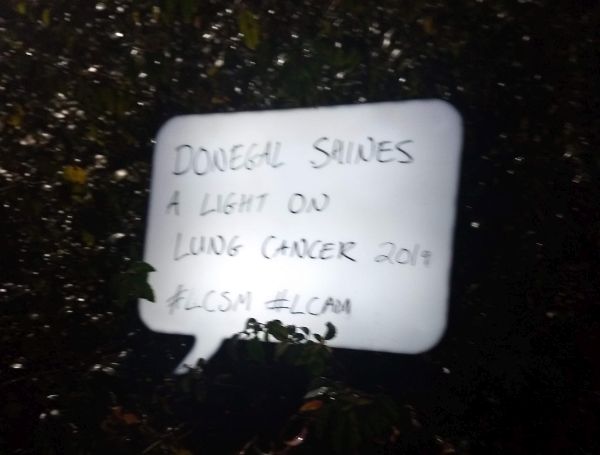 DONEGAL SHINES
A LIGHT ON
LUNG CANCER 2019
#LCSM #LCAM